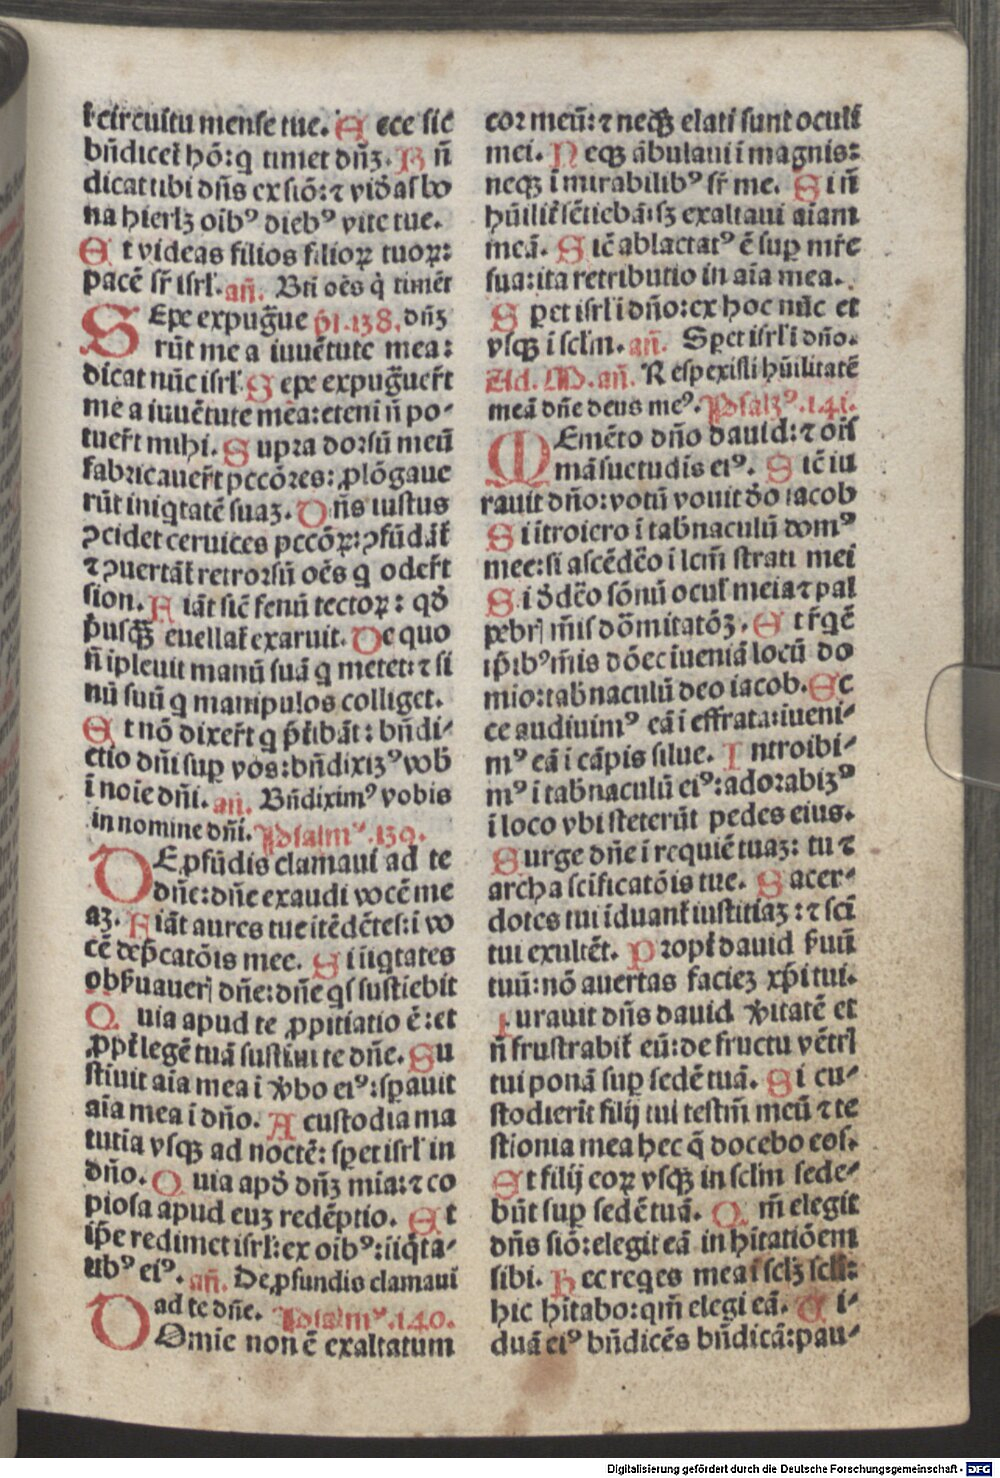 ī circuitu mense tue. Ecce sic
bn̄dicet̉ hō: q timet dn̄ꝫ. B n̄
dicat tibi dn̄s ex siō: ⁊ videas bo
na hierlꝫ oib⁹ dieb⁹ vite tue.
Et videas filios filioꝝ tuoꝝ:
pacē sr̄ isrl̓. an̄. Bti oēs q̇ timēt
SEpe expugūe ps̄. 138. dn̄ꝫ
rūt me a iuuētute mea:
dicat nūc isrl̓ Sepe expugūer̄t
me a iuuētute mea: eteni n̄ po-
tuer̄t mihi. Supra dorsū meū
fabricauer̄t pccōres: ꝓlōgaue
rūt iniqtatē suaꝫ. Dn̄s iustus
ꝯcidet ceruices pccōꝝ: ꝯfūdāt̉
⁊ ꝯuertāt̉ retrorsū oēs q oder̄t
sion. Fiāt sic̄ fenū tectoꝝ: qd̓
p̓usqꝫ euellat̉ exaruit. De quo
n̄ ipleuit manū suā q metet: ⁊ si
nū suū q manipulos colliget.
Et nō dixer̄t q p̄t̓ibāt: bn̄di-
ctio dn̄i suꝑ vos: bn̄dixiꝫ⁹ vob̓
ī noie dn̄i. an̄. Bn̄dixim⁹ vobis
in nomine dn̄i. Psalm⁹. 139.
DE ꝓfūdis clamaui ad te
dn̄e: dn̄e exaudi vocē me
aꝫ. Fiāt aures tue itēdētes: i vo
cē dep̄catōis mee. Si iiqtates
obẜuauerꝭ dn̄e: dn̄e qs sustiebit
Quia apud te ꝓpitiatio ē: et
ꝓpt̓ legē tuā sustinui te dn̄e. Su
stiuit aīa mea i v̓bo ei⁹: sꝑauit
aīa mea i dn̄o. A custodia ma
tutia vsqꝫ ad noctē: sꝑet isrl̓ in
dn̄o. Quia apd̓ dn̄ꝫ mia: ⁊ co
piosa apud euꝫ redēptio. Et
ip̄e redimet isrl̓: ex oib⁹: iiq̇ta-
tib⁹ ei⁹. an̄. De ꝓfundis clamaui
ad te dn̄e. Psalm⁹. 140.
DOmie non ē exaltatum
cor meū: ⁊ neqꝫ elati sunt oculi
mei. Neqꝫ ābulaui i magnis:
neqꝫ i mirabilib⁹ sr̄ me. Si n̄
hūilit̓ sētiebā: sꝫ exaltaui aīam
meā. Sic̄ ablactat⁹ ē suꝑ mr̄e
sua: ita retributio in aīa mea.
Sꝑet isrl̓ i dn̄o: ex hoc nūc et
vsqꝫ i sclm̄. an̄. Sꝑet isrl̓ i dn̄o.
Ad. M. an̄. Respexisti hūilitatē
meā dn̄e deus me⁹. Psalꝫ⁹. 141.
MEmēto dn̄o dauid: ⁊ ois̄
māsuetudis ei⁹. Sic̄ iu
rauit dn̄o: votū vouit do̓ iacob
Si ītroiero i tab̓naculū dom⁹
mee: si ascēdēo i lctm̄ strati mei
Si d̓dēo sōnū ocul̓ meis ⁊ pal
pebrꝭ m̄is dōmitatōꝫ. Et r̄qē
tp̄ib⁹ m̄is dōec iueniā locū do
mio: tab̓naculū deo iacob. Ec
ce audiuim⁹ eā i effrata: iueni-
m⁹ eā i cāpis silue. Introibi-
m⁹ i tab̓naculū ei⁹: adorabiꝫ⁹
i loco vbi steterūt pedes eius.
Surge dn̄e i requiē tuaꝫ: tu ⁊
archa scificatōis tue. Sacer-
dotes tui iduant̉ iustitiaꝫ: ⁊ sci̅
tui exultēt. Propt̓ dauid ẜuū
tuū: nō auertas facieꝫ xp̄i tui.
Iurauit dn̄s dauid v̓itatē et
n̄ frustrabit̉ eū: de fructu vētrꝭ
tui ponā suꝑ sedē tuā. Si cu-
stodierit̄ filij tui testm̄ meū ⁊ te
stionia mea hec q̄ docebo eos.
Et filij eoꝝ vsqꝫ in sclm̄ sede-
būt suꝑ sedē tuā. Qm̄ elegit
dn̄s siō: elegit eā in hitatiōem
sibi. Hec reqes mea i sclꝫ scl̓i:
hic hitabo: qm̄ elegi eā. Ui-
duā ei⁹ bn̄dicēs bn̄dicā: pau-
Digitalisierung gefördert durch die Deutsche Forschungsgemeinschaft - DFG